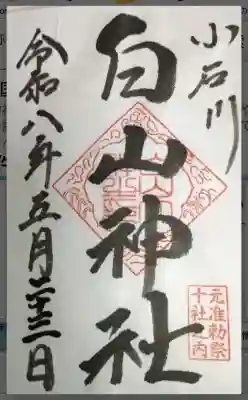 小石川
白山神社
令和八年五月二十三日
元准勅祭
十社之内